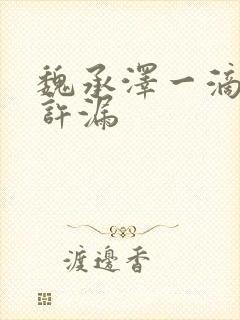 魏承澤一滴
許漏
渡邊香